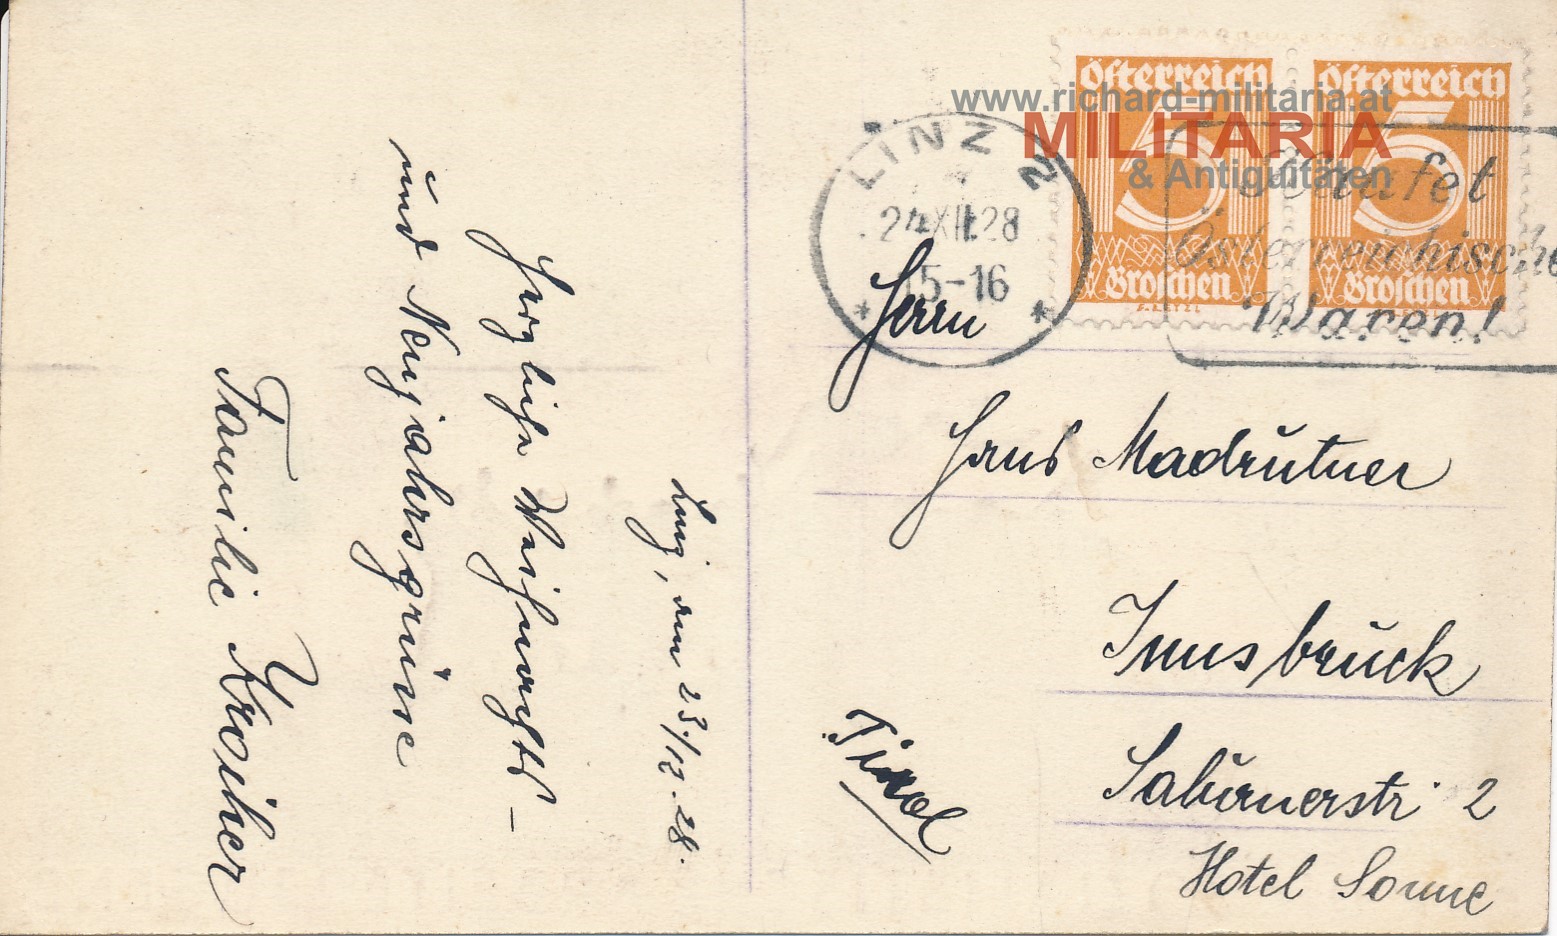 Linz, am 23./12.28.
Herzliche Weihnachts-
und Neujahrsgrüsse
Familie
Österreich
5
Groschen
Österreich
5
Groschen
LINZ 2
24.XII.28
15-16
* *
Kaufet
Österreichische
Waren!
www.richard-militaria.at
MILITARIA
& Antiquitäten
Herrn
Hans Madrutner
Innsbruck
Salurnerstr. 2
Hotel Sonne
Tirol